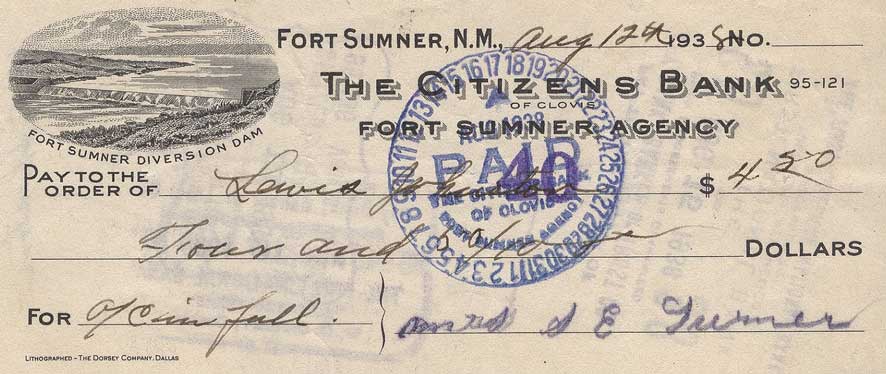 FORT SUMNER, N.M., Aug 12th 1938 NO.
THE CITIZENS BANK 95-121
OF CLOVIS
FORT SUMNER AGENCY
FORT SUMNER DIVERSION DAM
PAY TO THE
ORDER OF Lewis Johnston $ 4.50
Four and 50/100 DOLLARS
FOR in full. Mrs S E Turner
LITHOGRAPHED - THE DORSEY COMPANY, DALLAS
1 2 3 4 5 6 7 8 9 10 11 12 13 14 15 16 17 18 19 20 21 22 23 24 25 26 27 28 29 30 31
1938
PAID
40
THE CITIZENS
OF CLOVIS
FORT SUMNER AGENCY